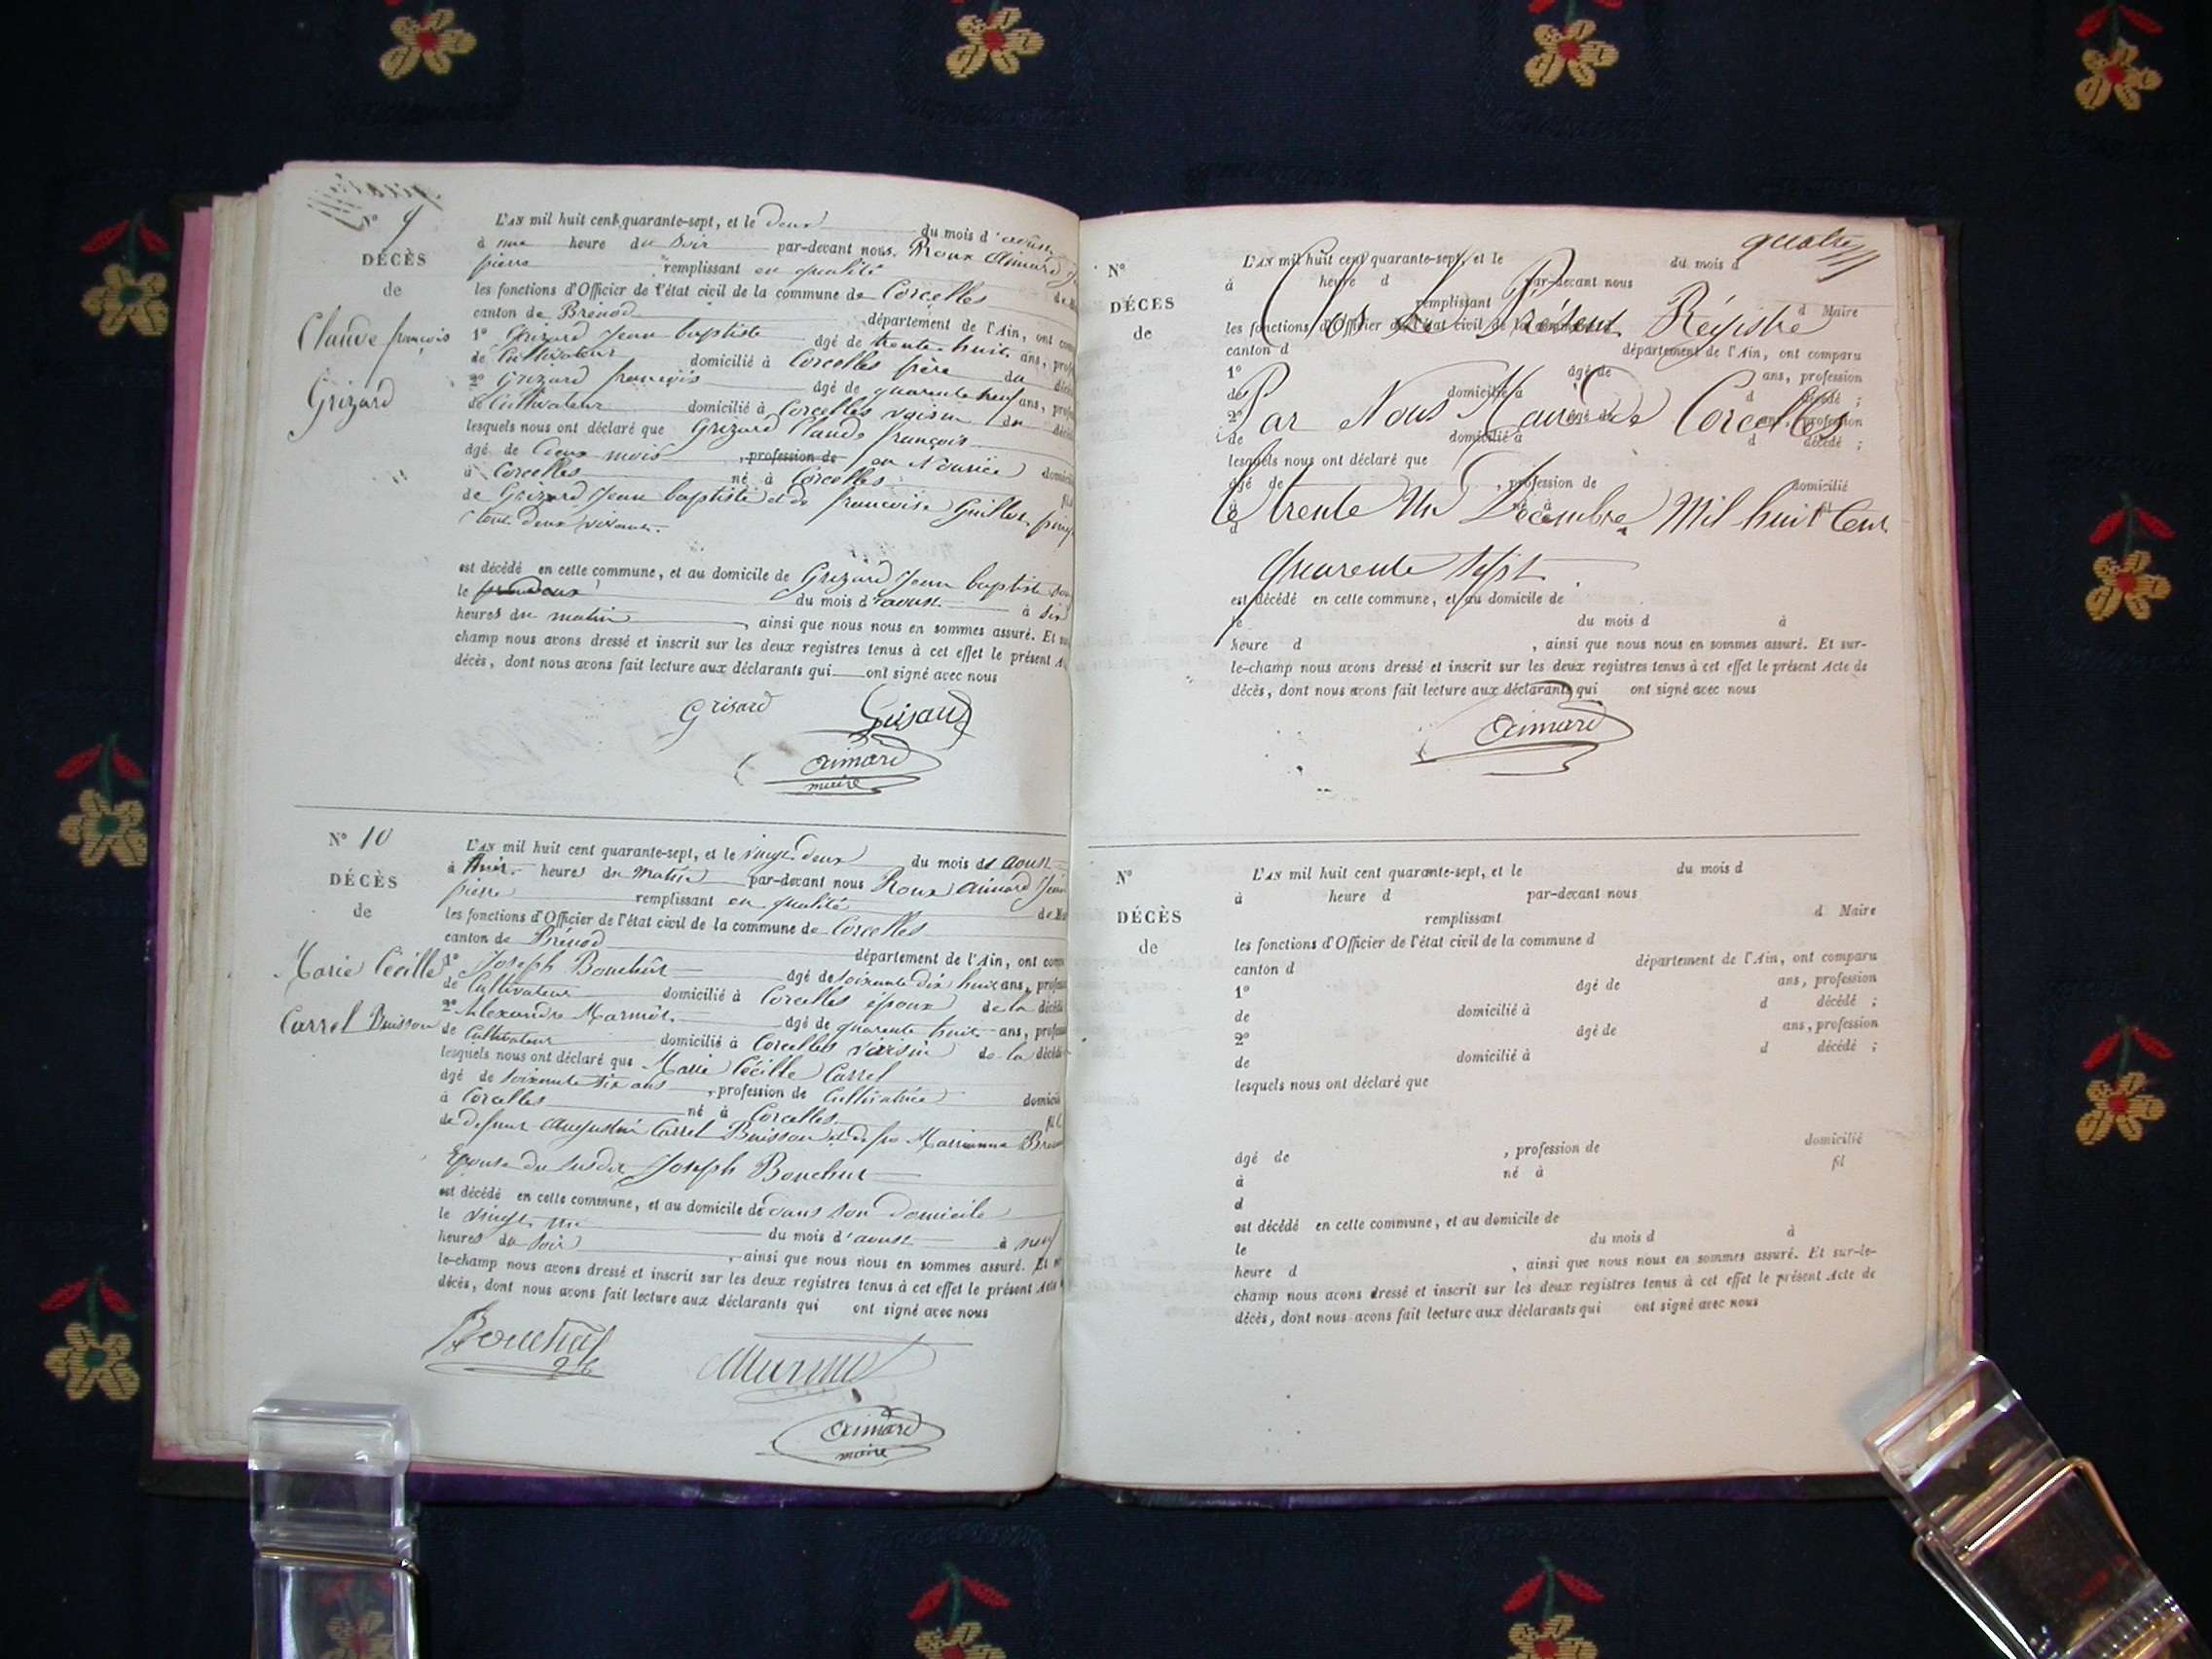 N° 9
DÉCÈS
de
Claude françois
Grizard
L'AN mil huit cent quarante-sept, et le deux du mois d'aoust
à une heure du soir par-devant nous Roux Aimard
pierre remplissant en qualité de
les fonctions d'Officier de l'état civil de la commune de Corcelles
canton de Brénod département de l'Ain, ont
1° Grizard Jean baptiste âgé de trente huit ans,
de Cultivateur domicilié à Corcelles frère du
2° Grizard françois âgé de quarente neuf ans,
de Cultivateur domicilié à Corcelles voisin du
lesquels nous ont déclaré que Grizard Claude françois
âgé de deux mois , profession de en Nourice
à Corcelles né à Corcelles
de Grizard Jean baptiste et de francoise Guillot
tout deux vivant.
est décédé en cette commune, et au domicile de Grizard Jean baptiste
le deux du mois d'aoust à six
heures du matin , ainsi que nous nous en sommes assuré. Et
champ nous avons dressé et inscrit sur les deux registres tenus à cet effet le présent
décès, dont nous avons fait lecture aux déclarants qui ont signé avec nous
Grisard Grisard
aimard
maire
N° 10
DÉCÈS
de
Marie Cécille
Carrel Buisson
L'AN mil huit cent quarante-sept, et le vingt deux du mois d'aoust
à huit heures du matin par-devant nous Roux aimard Jean
pierre remplissant en qualité de
les fonctions d'Officier de l'état civil de la commune de Corcelles
canton de Brénod département de l'Ain, ont
1° Joseph Bouchut âgé de soixante dix huit ans,
de Cultivateur domicilié à Corcelles époux de la
2° Alexandre Marmet âgé de quarente huit ans,
de Cultivateur domicilié à Corcelles voisin de la
lesquels nous ont déclaré que Marie Cécille Carrel
âgé de soixante six ans , profession de Cultivatrice
à Corcelles né à Corcelles
de defunt augustin Carrel Buisson et de Marrianne
Epouse du susdit Joseph Bouchut
est décédé en cette commune, et au domicile de dans son domicile
le vingt un du mois d'aoust à neuf
heures du soir , ainsi que nous nous en sommes assuré. Et
le-champ nous avons dressé et inscrit sur les deux registres tenus à cet effet le présent
décès, dont nous avons fait lecture aux déclarants qui ont signé avec nous
Bouchut
aimard
maire
quatre
N°
DÉCES
de
L'AN mil huit cent quarante-sept, et le du mois d
à heure d par-devant nous
remplissant d Maire
Clos Le Présent Régistre
les fonctions d'Officier de l'état civil de la commune
canton d département de l'Ain, ont comparu
1° âgé de ans, profession
de domicilié à d décédé ;
Par Nous Maire de Corcelles
2° âgé de ans, profession
de domicilié à d décédé ;
lesquels nous ont déclaré que
âgé de , profession de domicilié
le trente Un Décembre Mil huit Cent
à né à fil
d
quarente Sept
est décédé en cette commune, et au domicile de
le du mois d à
heure d , ainsi que nous nous en sommes assuré. Et sur-
le-champ nous avons dressé et inscrit sur les deux registres tenus à cet effet le présent Acte de
décès, dont nous avons fait lecture aux déclarants qui ont signé avec nous
aimard
N°
DÉCÈS
de
L'AN mil huit cent quarante-sept, et le du mois d
à heure d par-devant nous
remplissant d Maire
les fonctions d'Officier de l'état civil de la commune d
canton d département de l'Ain, ont comparu
1° âgé de ans, profession
de domicilié à d décédé ;
2° âgé de ans, profession
de domicilié à d décédé ;
lesquels nous ont déclaré que
âgé de , profession de domicilié
à né à fil
d
est décédé en cette commune, et au domicile de
le du mois d à
heure d , ainsi que nous nous en sommes assuré. Et sur-le-
champ nous avons dressé et inscrit sur les deux registres tenus à cet effet le présent Acte de
décès, dont nous avons fait lecture aux déclarants qui ont signé avec nous